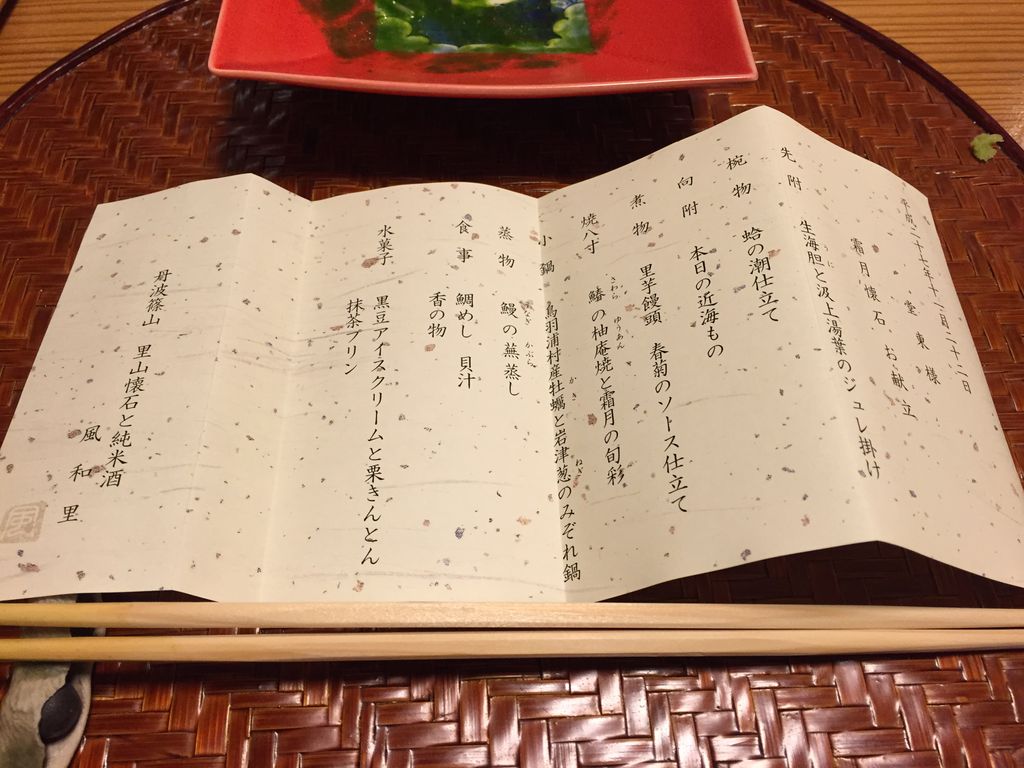 平成二十七年十二月二十二日
堂東様
霜月懐石お献立
先附 生海胆と汲上湯葉のジュレ掛け
うに
椀物 蛤の潮仕立て
向附 本日の近海もの
煮物 里芋饅頭 春菊のソトス仕立て
焼八寸 鰆の柚庵焼と霜月の旬彩
さわら ゆうあん
小鍋 鳥羽浦村産牡蠣と岩津葱のみぞれ鍋
かき ねぎ
蒸物 鰻の蕪蒸し
うなぎ かぶら
食事 鯛めし 貝汁
香の物
水菓子 黒豆アイスクリームと栗きんとん
抹茶プリン
丹波篠山 里山懐石と純米酒
風和里